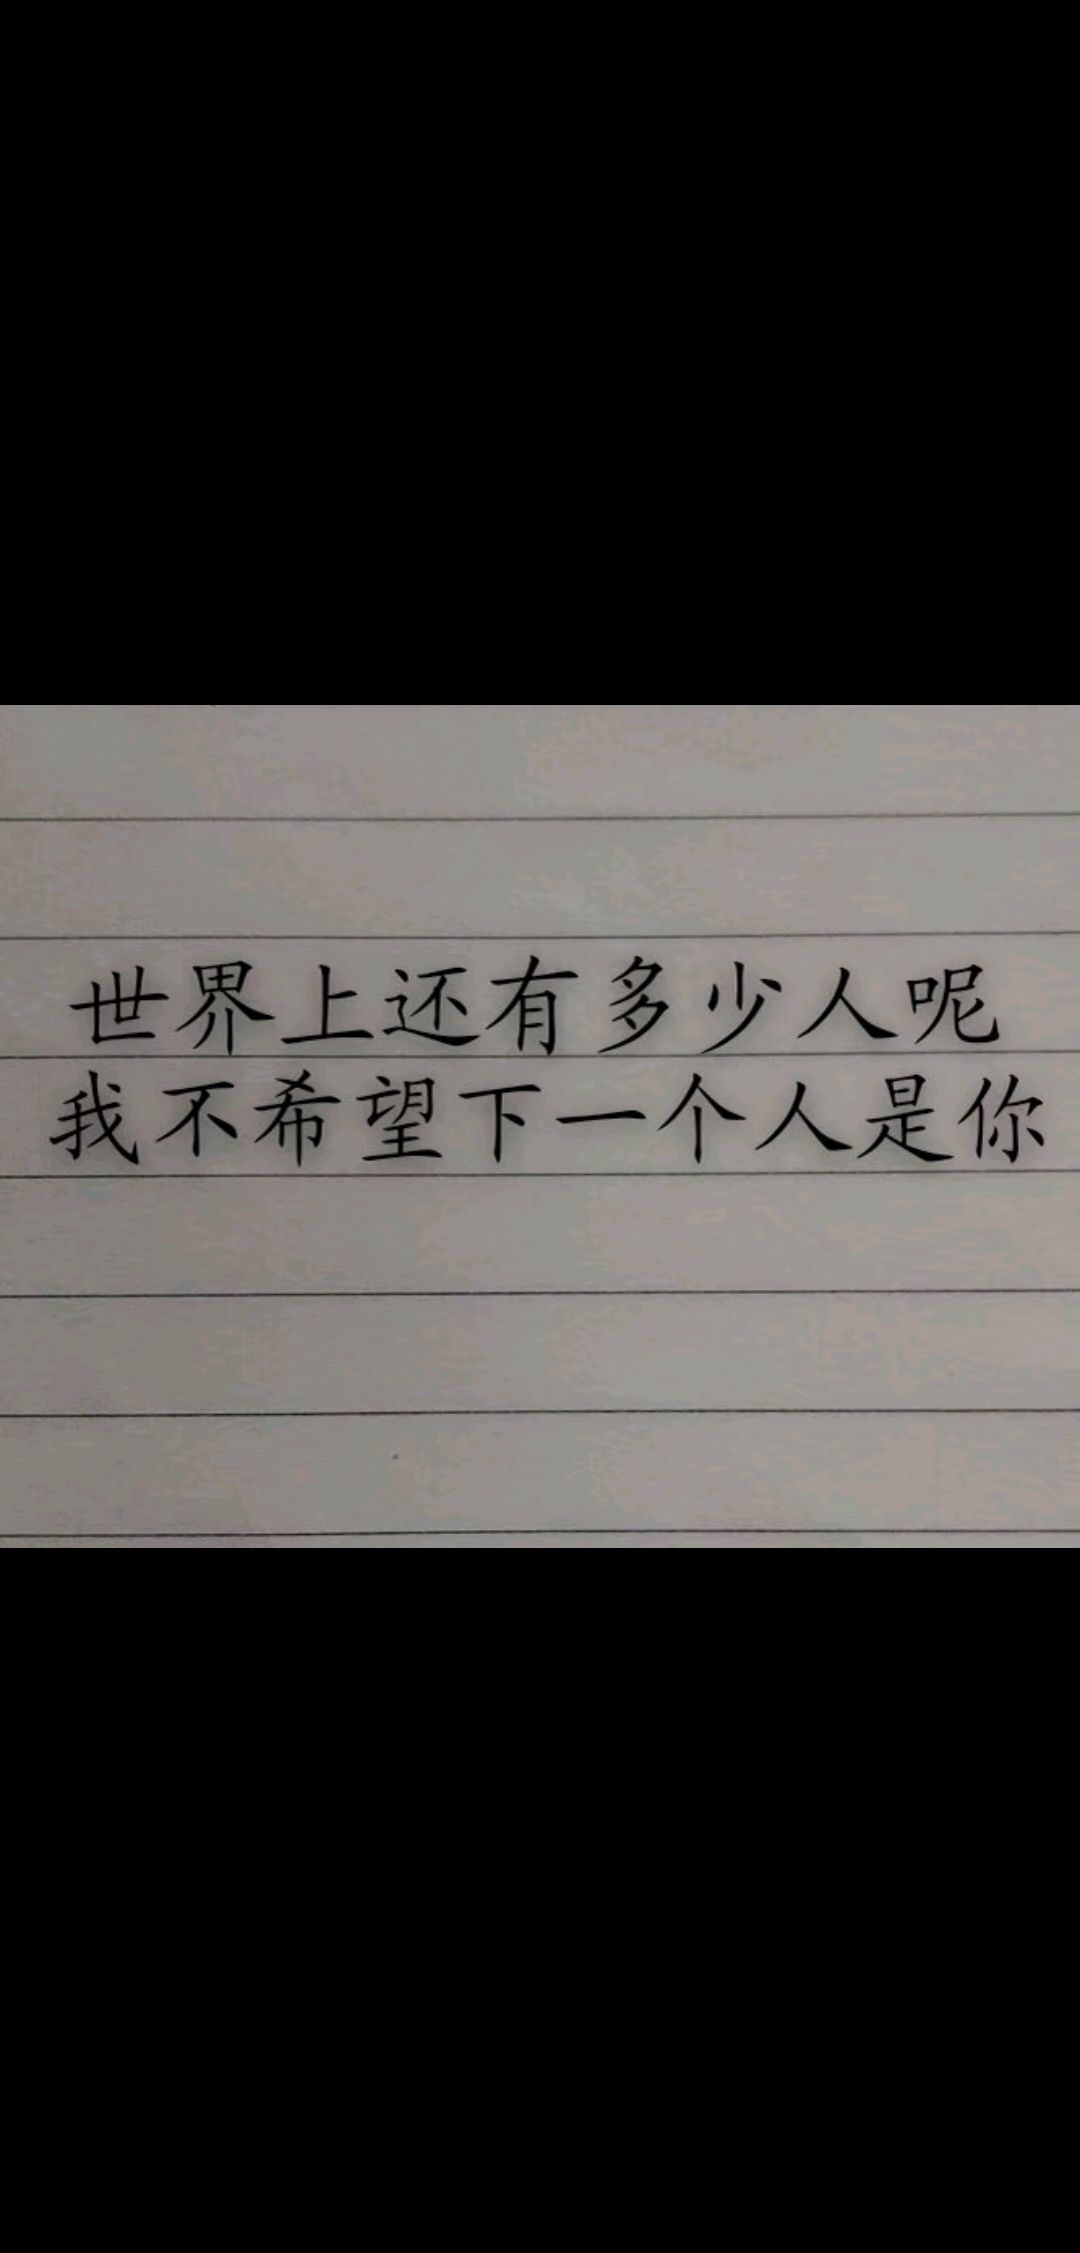 世界上还有多少人呢
我不希望下一个人是你